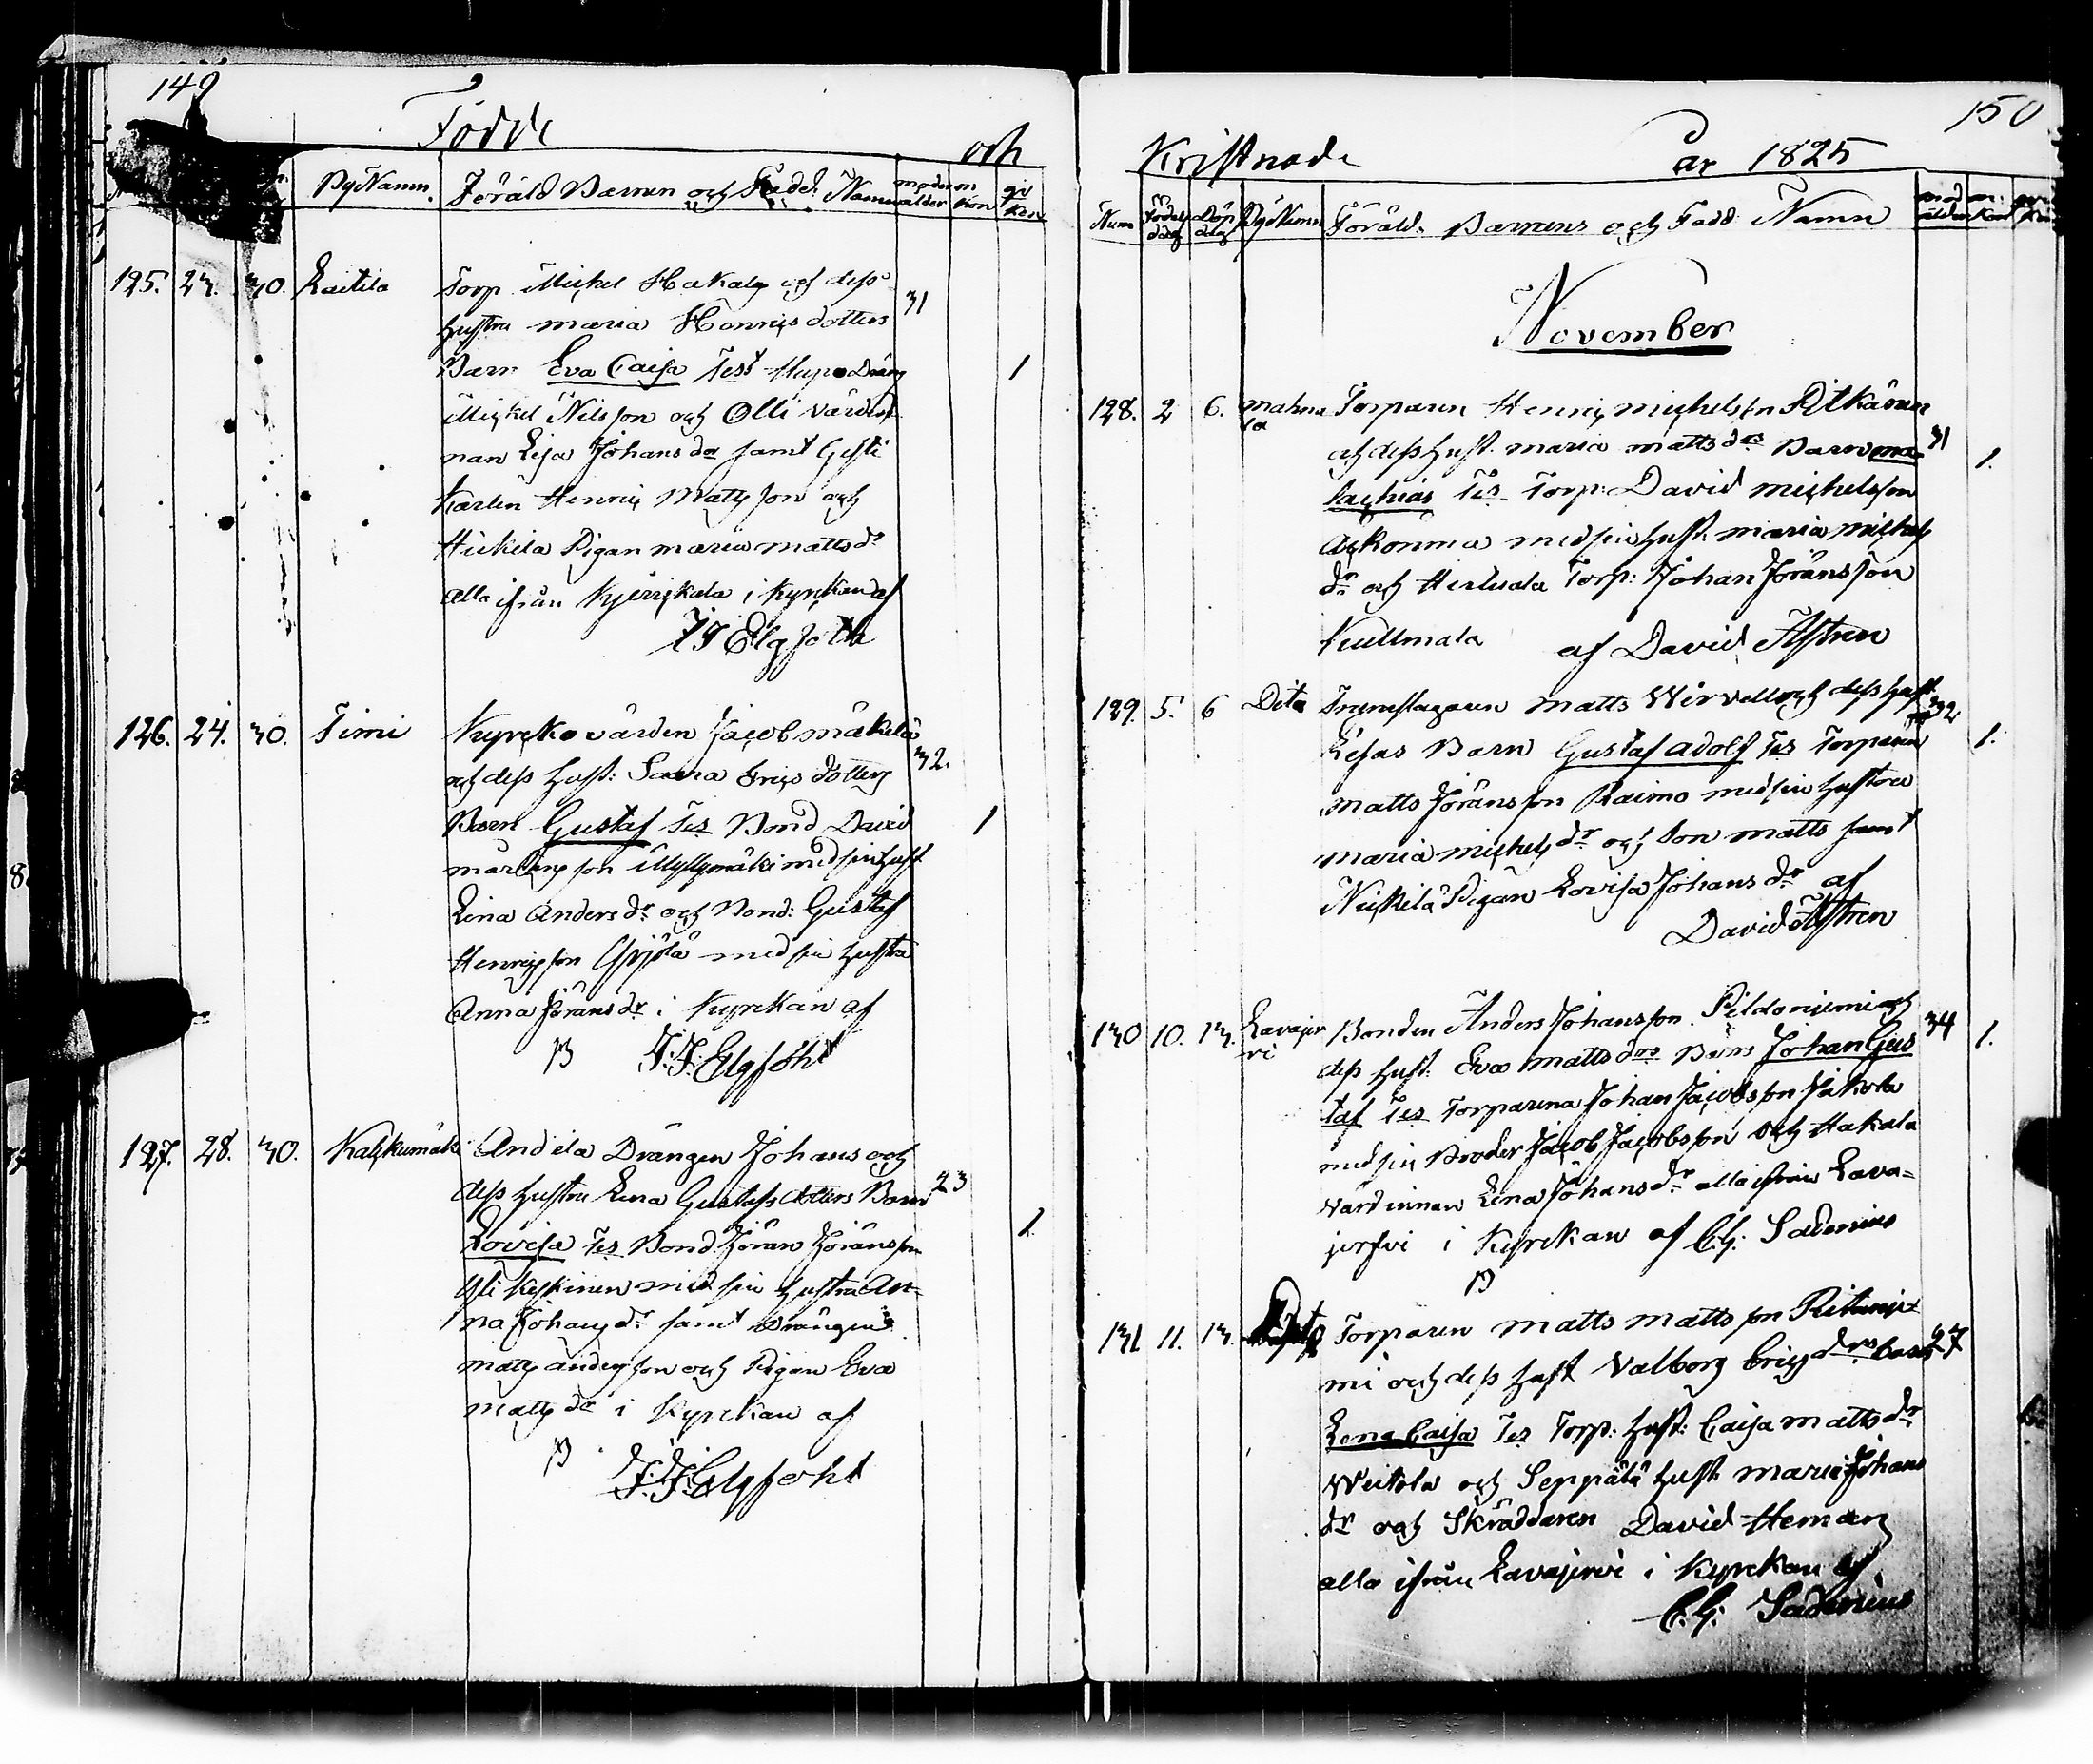 149
Födde och
By Namn. Föräld Barnen och Fadd: Namn moders ålder m kön qv kön
125. 23. 30. Laitila Torp. Michel Hakala och dess 31
hustru Maria Henrics dotters
Barn Eva Caisa Test Dräng 1
Michel Nilsson och Olli värdin
nan Lisa Johans dr samt
Karlen Henric Mattsson och
Heikila Pigan Maria Matts dr
alla ifrån i Kyrckan af
Elgfoth
126. 24. 30. Timi Kyrckovärden Jacob Mäkelä
och dess hust: Sanna Erics dotters 32.
Barn Gustaf Tes Bond David 1
Mårtensson Myllymäki med sin hust
Lina Anders dr och Bond: Gustaf
Henricsson med sin hustru
Anna Jörans dr i Kyrckan af
J.J. Elgfoht
127. 28. 30. Kalckumäki Andela Drängen Johans och
dess hustru Lena Gustafs dotters Barn 23
Lovisa Tes Bond Jöran Jöransson 1
Yli Keskinen med sin hustru An=
na Johans dr samt Drängen
Matts Andersson och Pigan Eva
Matts dr i Kyrckan af
J.J. Elgfoht
150
Kristnade år 1825
Num Födel dag Döp dag By Namn Föräld. Barnens och Fadd Namn mod ålder m. kön qvi kön
November
128. 2 6. Mahna Torparen Henric Michelsson Pitkänen
la och dess hust. Maria Matts drs Barn Ma 31 1.
lachias Tes Torp: David Michelsson
Ackonma med sin hust. Maria Michels
dr och Torp: Johan Jöransson
Kullmala af David Åstren
129. 5. 6 Dito Matts Wirvell och dess hust 32
Lisas Barn Gustaf Adolf Tes Torparen 1.
Matts Jöransson Raimo med sin hustru
Maria Michels dr och Son Matts samt
Pigan Lovisa Johans dr af
David Åstren
130 10. 13. Lavajer Bonden Anders Johansson och 34
vi dess hust. Eva Matts drs Barn Johan Gus 1.
taf Tes Torparena Johan Jacobsson Jakola
med sin Broder Jacob Jacobsson och Hakala
värdinnan Lena Johans dr alla ifrån Lava=
jerfvi i Kyrckan af C.G. Sadenius
131 11. 13. Torparen Matts Mattsson 27
mi och dess hust Valborg Erics drs barn
Lena Caisa Tes Torp: hust: Caisa Matts dr
Weitola och Seppälä hust. Maria Johans
dr och Skräddaren David Heman
alla ifrån Lavajervi i Kyrckan af
C.G. Sadenius